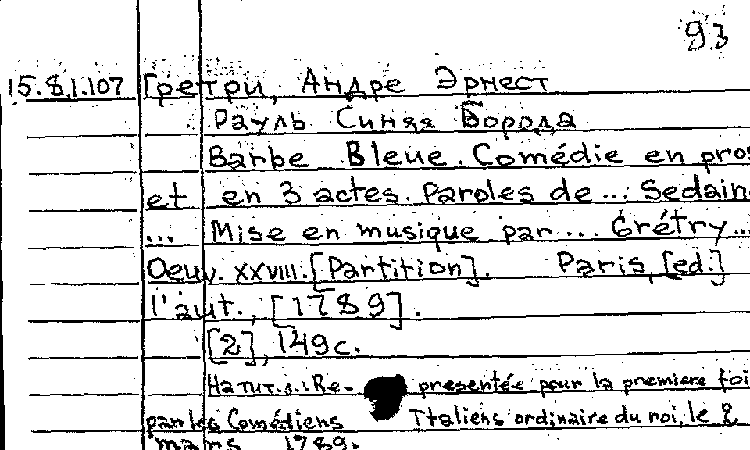 93
15.8.1.107 Гретри, Андре Эрнест
Рауль Синяя Борода
Barbe Bleue. Comédie en pros
et en 3 actes. Paroles de... Sedain
... Mise en musique par... Grétry...
Oeuv. XXVIII. [Partition]. Paris, [ed.]
l'aut., [1789].
[2], 149 с.
На тит. л.: Re- presentée pour la premiere foi
par les Comédiens Italiens ordinaire du roi, le 2
mars 1789.